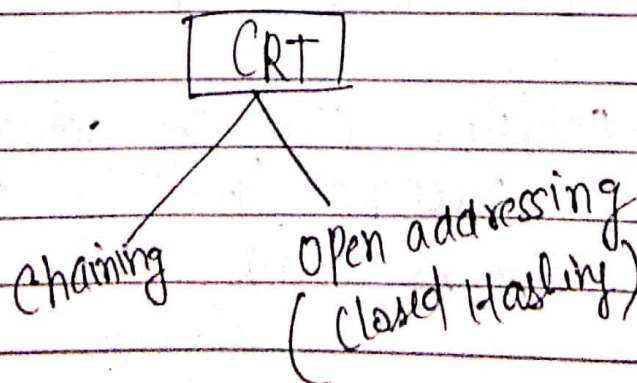 CRT
Chaining
Open addressing
(Closed Hashing)